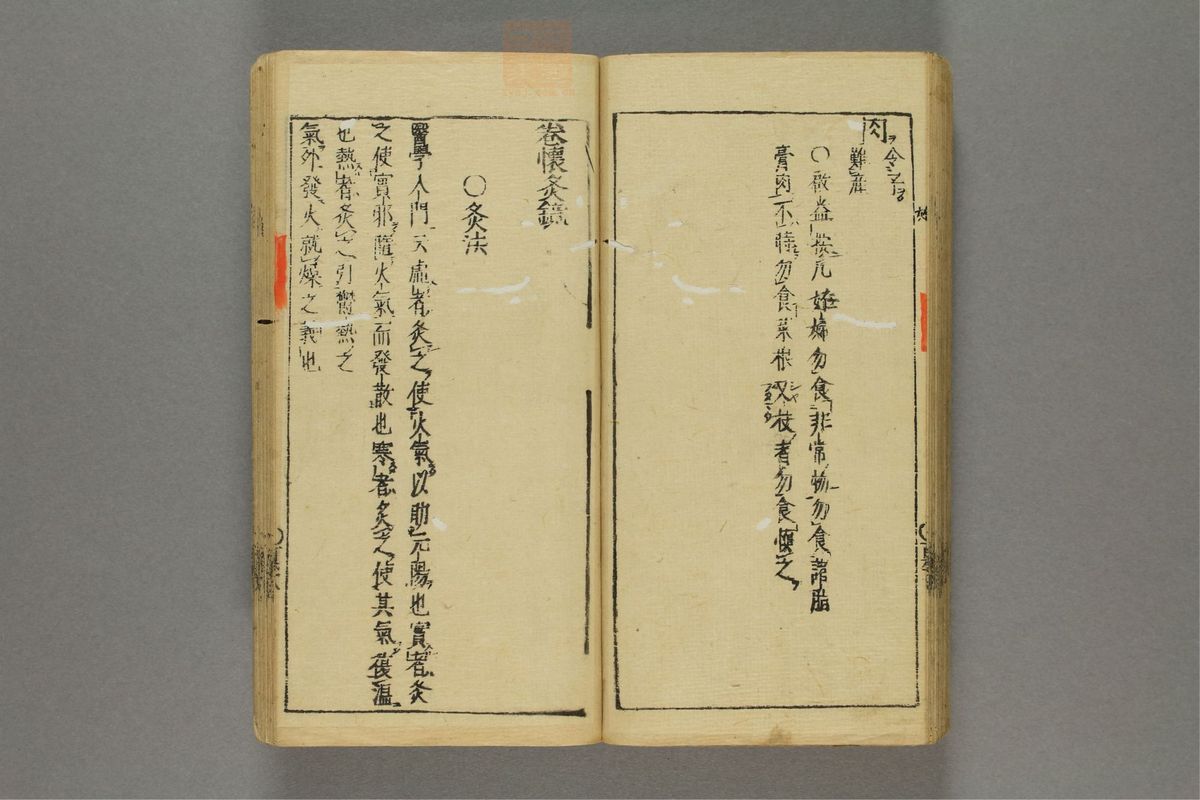 肉ヲ令シムル
難産
〇啟益按凡妊婦勿食非常物勿食諸脂
膏肉不時勿食菜根又枝者勿食慎之
卷懷灸鏡
〇灸法
醫學入門云虛者灸之使火氣以助元陽也實者灸
之使實邪隨火氣而發散也寒者灸之使其氣復溫
也熱者灸之引鬱熱之
氣外發火就燥之義也